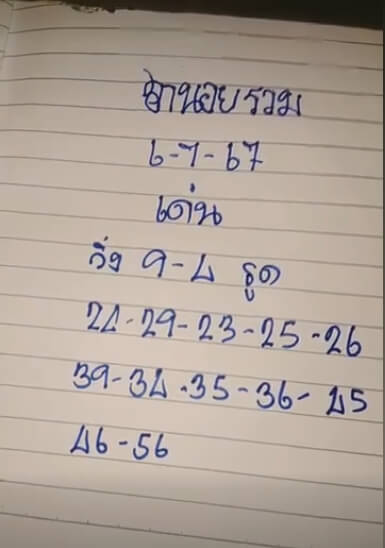 ฮานอยรวม
6-7-67
เด่น
วิ่ง 9-4 รูด
24-29-23-25-26
39-34-35-36-45
46-56